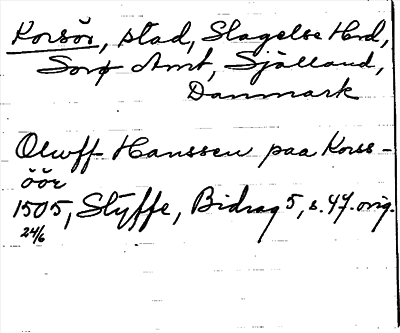 Korsör, stad, Slagelse Hrd,
Sorø Amt, Själland,
Danmark
Olwff Hanssen paa Korss-
öör
1505, Styffe, Bidrag 5, s. 47. orig.
24/6